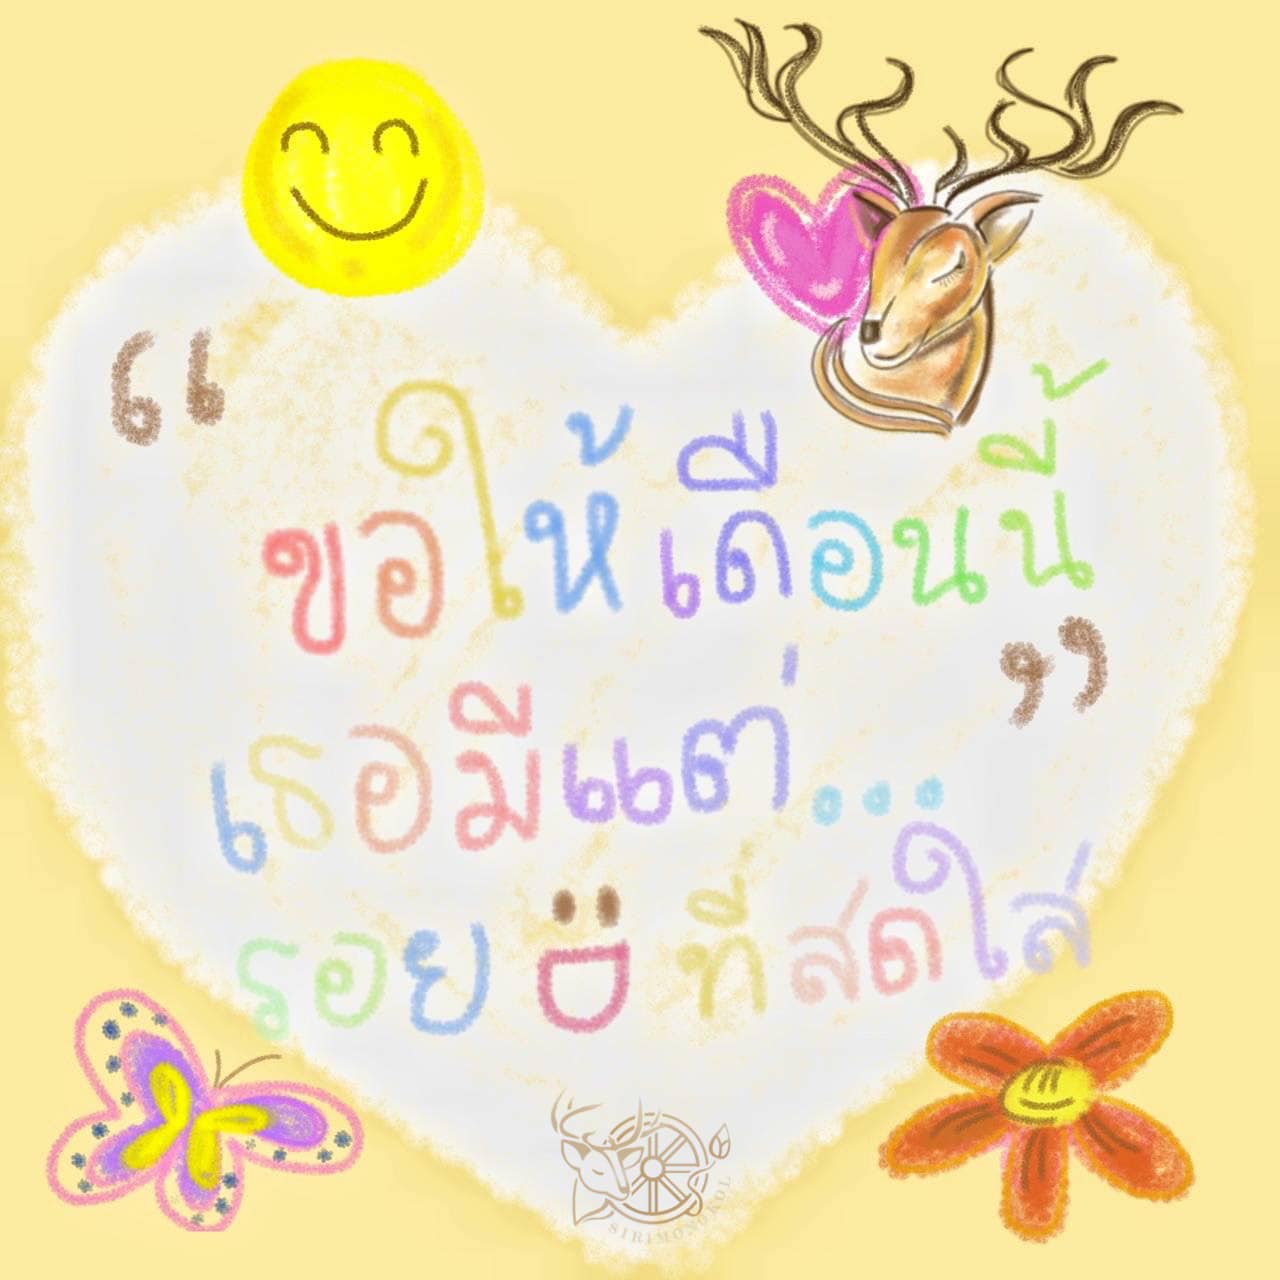 “ขอให้เดือนนี้
เธอมีแต่...”
รอย ที่สดใส
SIRIMONGKOL